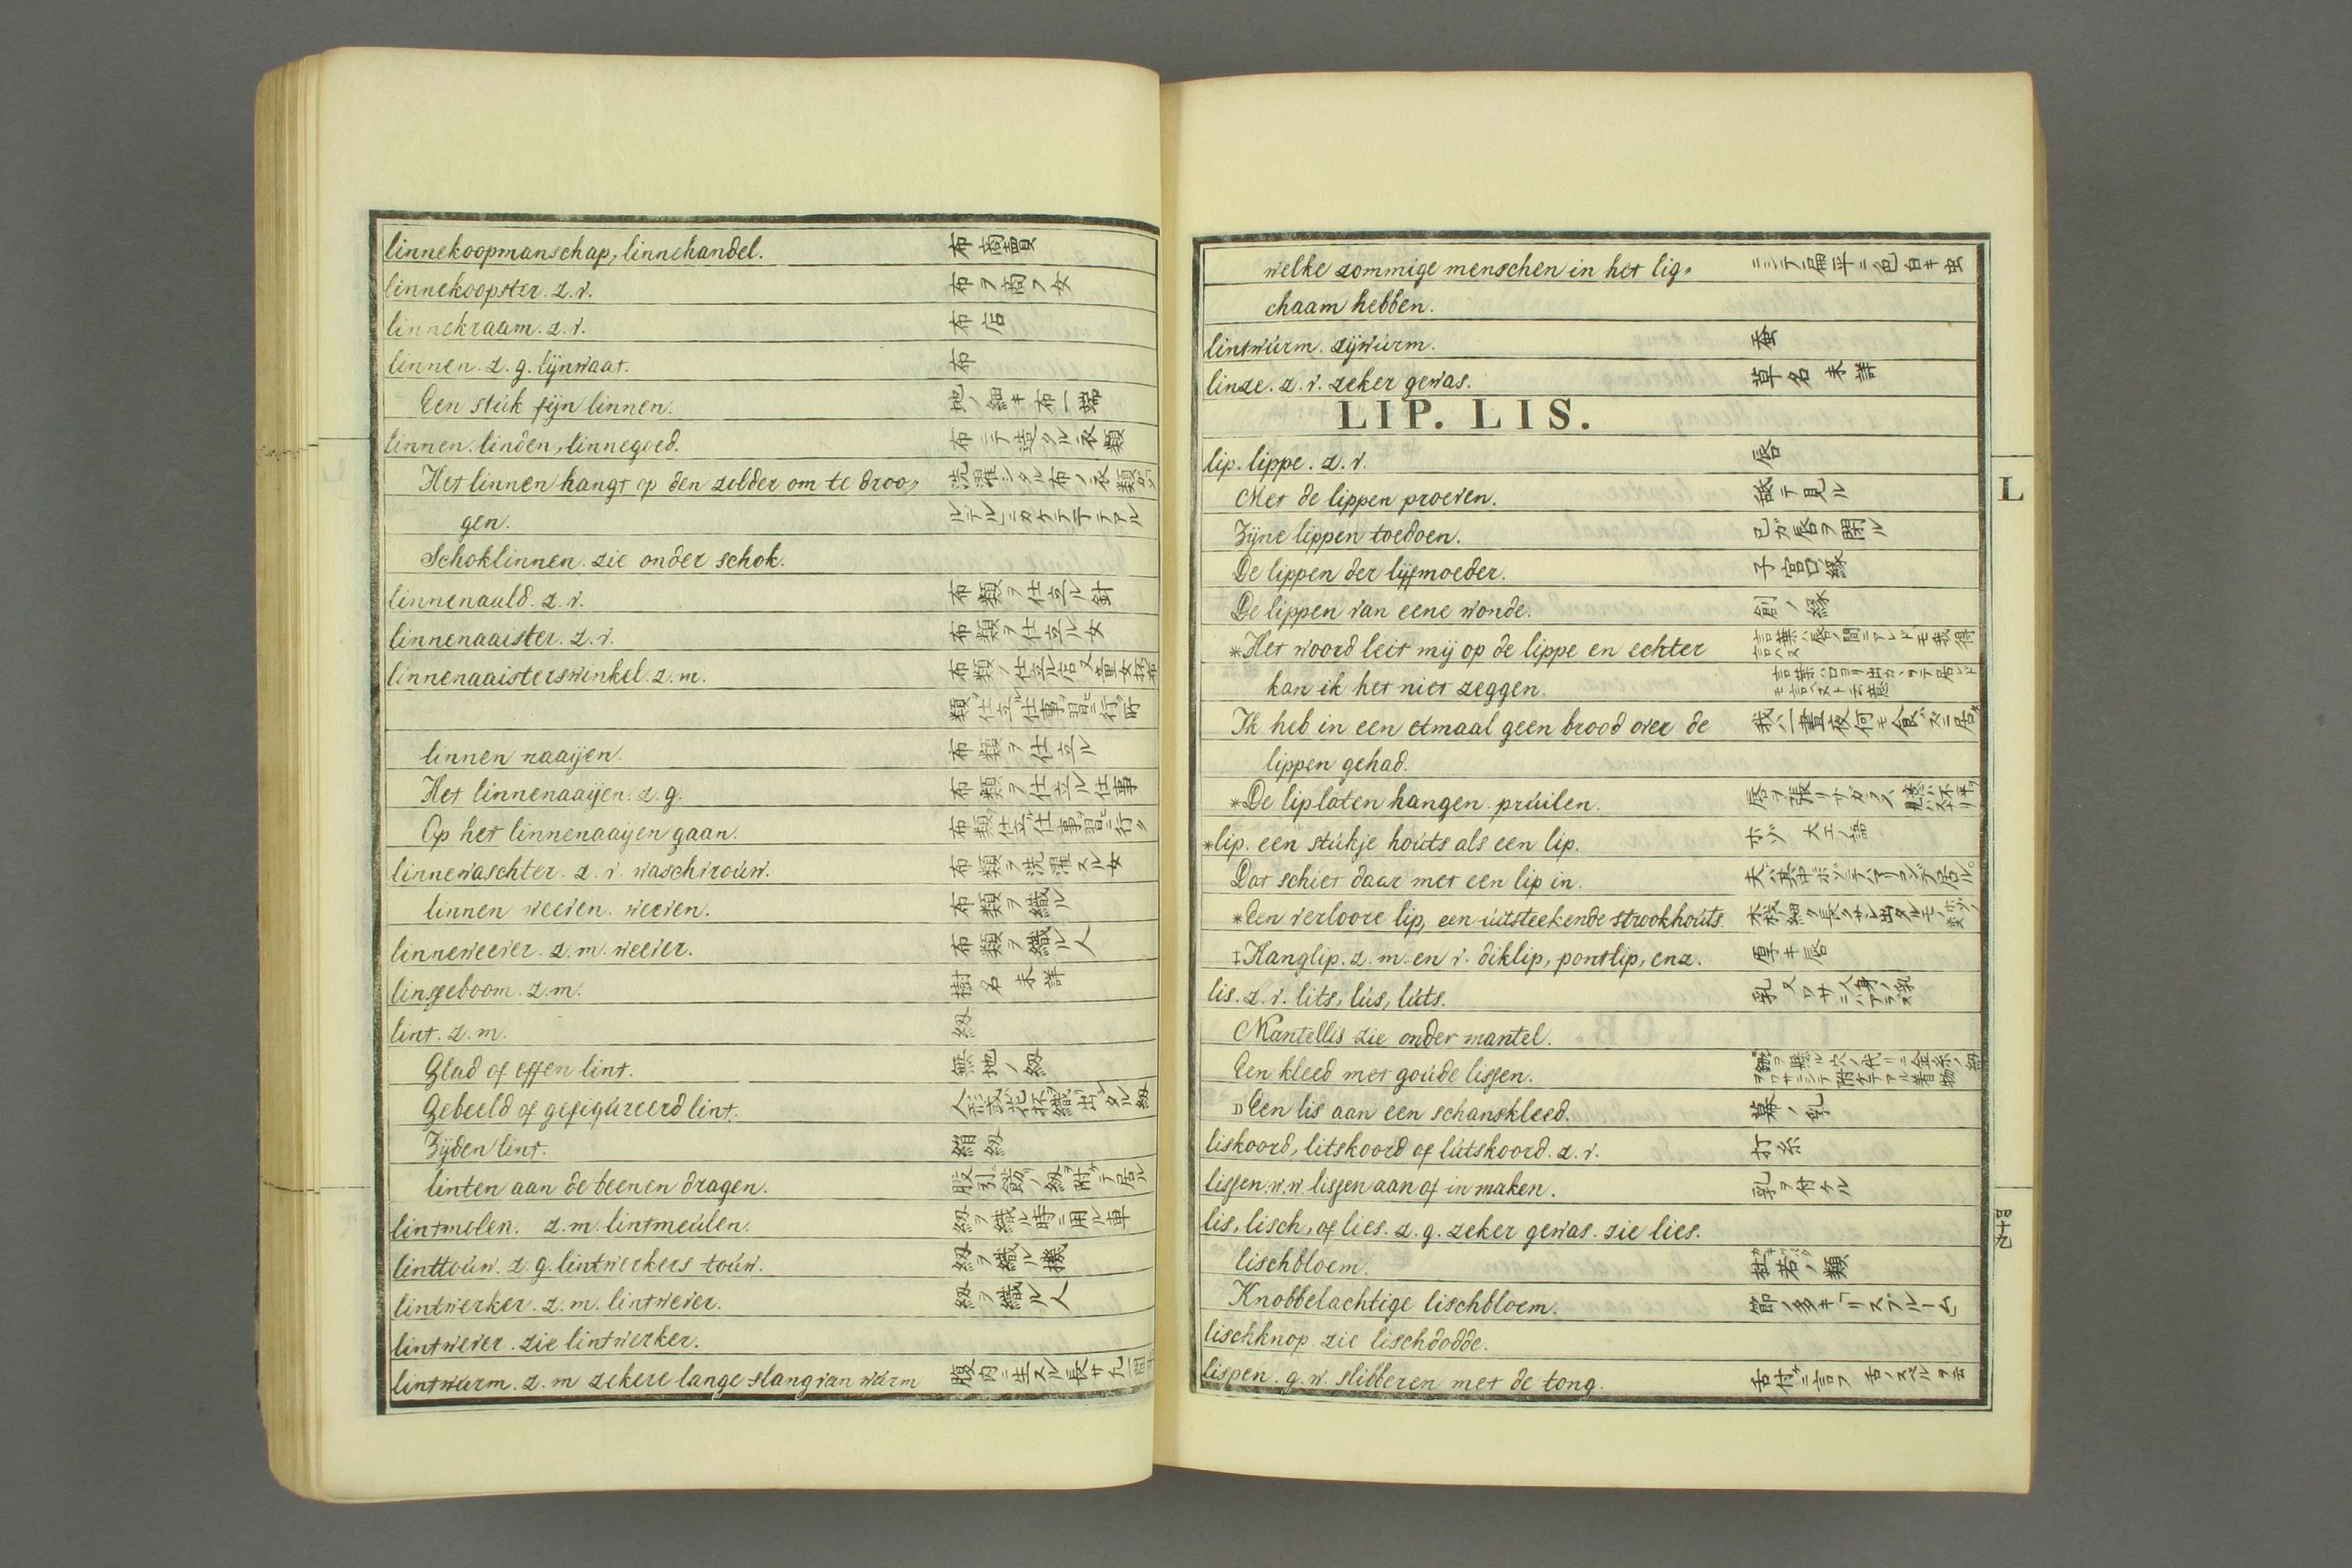 linnekoopmanschap, linnehandel. 布商賣
linnekoopster. z.v. 布ヲ商フ女
linnekraam. z.v. 布店
linnen. z.g. lijnwaat. 布
Een stúk fijn linnen. 地ノ細キ布一端
linnen. linden, linnegoed. 布ニテ造タル衣類
Het linnen hangt op den zolder om te droo, 洗濯シタル布ノ衣類
gen.
Schoklinnen. zie onder schok.
linnenauld. z.v. 布類ヲ仕立ル針
linnenaaister. z.v. 布類ヲ仕立ル女
linnenaaisterswinkel. z.m. 布類ノ仕立店又童女抔布
類ノ仕立ノ仕事ヲ習ヒニ行ク所
linnen naaijen. 布類ヲ仕立ル
Het linnenaaijen. z.g. 布類ヲ仕立ル仕事
Op het linnenaaijen gaan. 布類仕立ノ仕事ヲ習ヒニ行ク
linnewaschter. z.v. waschvroúw. 布類ヲ洗濯スル女
linnen weeven. weeven. 布類ヲ織ル
linneweever. z.m. weever. 布類ヲ織ル人
linseboom. z.m. 樹名未詳
lint. z.m. 紐
Glad of effen lint. 無地ノ紐
Gebeeld of gefigúreerd lint. 人形或花抔織出シタル紐
Zijden lint. 絹紐
linten aan de beenen dragen. 股引ノ飾ノ紐ヲ附ケテ居ル
lintmolen. z.m. lintmeúlen. 紐ヲ織ル時ニ用ル車
linttoúw. z.g. lintwerkers toúw. 紐ヲ織ル機
lintwerker. z.m. lintwever. 紐ヲ織ル人
lintwever. zie lintwerker.
lintwúrm. z.m zekere lange slang van wúrm 腹内ニ生スル長サ九
welke zommige menschen in het lig, ニシテ扁平ニ色白キ虫
chaam hebben.
lintwúrm. zijwúrm. 蚕
linze. z.v. zeker gewas. 草名未詳
LIP. LIS.
lip. lippe. z.v. 唇
Met de lippen proeven. 舐テ見ル
Zijne lippen toedoen. 己ガ唇ヲ閉ル
De lippen der lijfmoeder. 子宮口ノ縁
De lippen van eene wonde. 創ノ縁
*Het woord leit mij op de lippe en echter 言葉ハ唇ノ間ニアレドモ我得言ハヌ
kan ik het niet zeggen. 言葉ハ口ヨリ出カヽツテ居レドモ言ヘヌト云意
Ik heb in een etmaal geen brood over de 我ハ一晝夜何モ食ハズニ居タ
lippen gehad.
*De lip laten hangen. prúilen. 唇ヲ張リサガラス
*lip. een stúkje hoúts als een lip. ホゾ 大工ノ語
Dat schiet daar met een lip in.
*Een verloore lip, een úitsteekende strook hoúts.
‡Hanglip. z.m. en v. diklip, pontlip, enz. 厚キ唇
lis. z.v. lits, lús, lúts. 乳 又ワサ 人身ノ乳ニハアラズ
Mantellis zie onder mantel.
Een kleed met goúde lissen.
D Een lis aan een schanskleed. 幕ノ乳
liskoord, litskoord of lútskoord. z.v. 打糸
lissen. w.w. lissen aan of in maken. 乳ヲ付ケル
lis, lisch, of lies. z.g. zeker gewas. zie lies.
lischbloem. 杜若ノ類
Knobbelachtige lischbloem. 節ノ多キ「リスブルーム」
lischknop zie lischdodde.
lispen. g.w. slibberen met de tong. 舌付ニ言フ 舌ノスベルヲ云
L
四十九